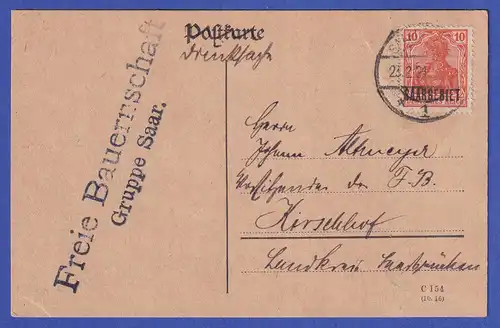 Postkarte
Drucksache
10 10
SAARGEBIET
23.2.21
1
Freie Bauernschaft
Gruppe Saar.
Herrn
Johann Altmeyer
Vorsitzender der F. B.
Kirschhof
Landkreis Saarbrücken
C 154